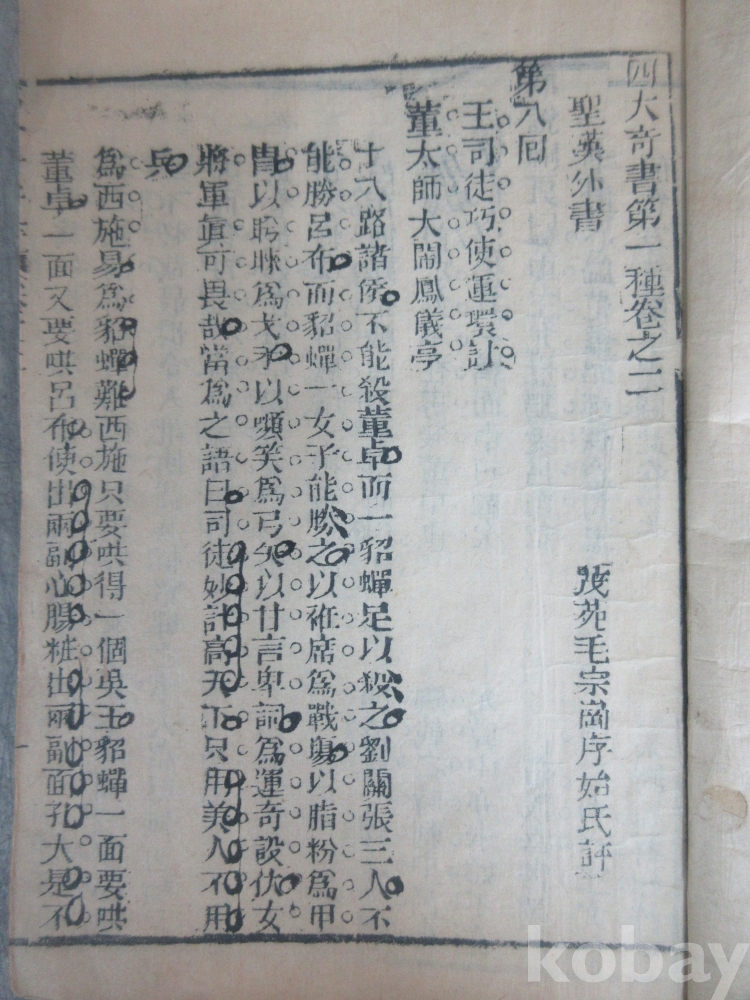 四大奇書第一種卷之二
聖英外書
茂苑毛宗崗序始氏評
第八回
王司徒巧使連環計
董太師大鬧鳳儀亭
十八路諸侯不能殺董卓而一貂蟬足以殺之劉關張三人不
能勝呂布而貂蟬一女子能勝之以袵席爲戰塲以脂粉爲甲
冑以盼睞爲戈矛以嚬笑爲弓矢以甘言卑詞爲運奇設伏女
將軍眞可畏哉當爲之語曰司徒妙計高天下只用美人不用
兵
爲西施易爲貂蟬難西施只要哄得一個吳王貂蟬一面要哄
董卓一面又要哄呂布使出兩副心腸粧出兩副面孔大是不
kobay